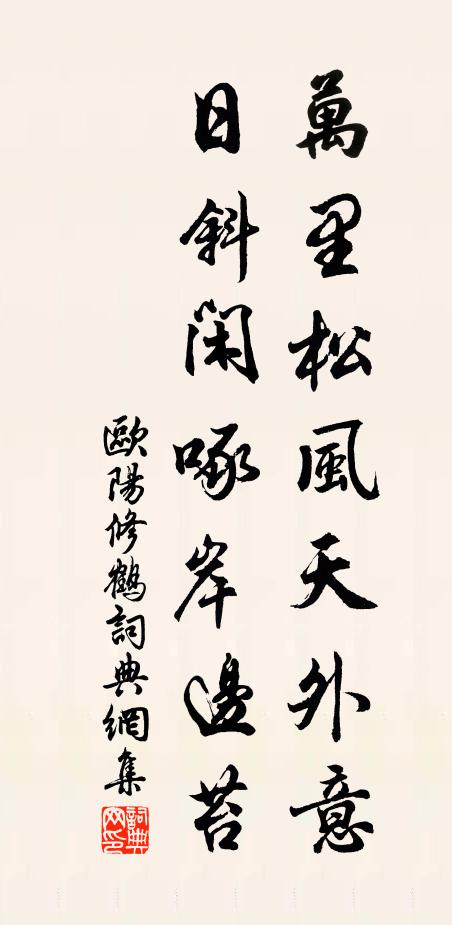 萬里松風天外意
日斜閑啄岸邊苔
歐陽修鶴詞典網集
詞典網印